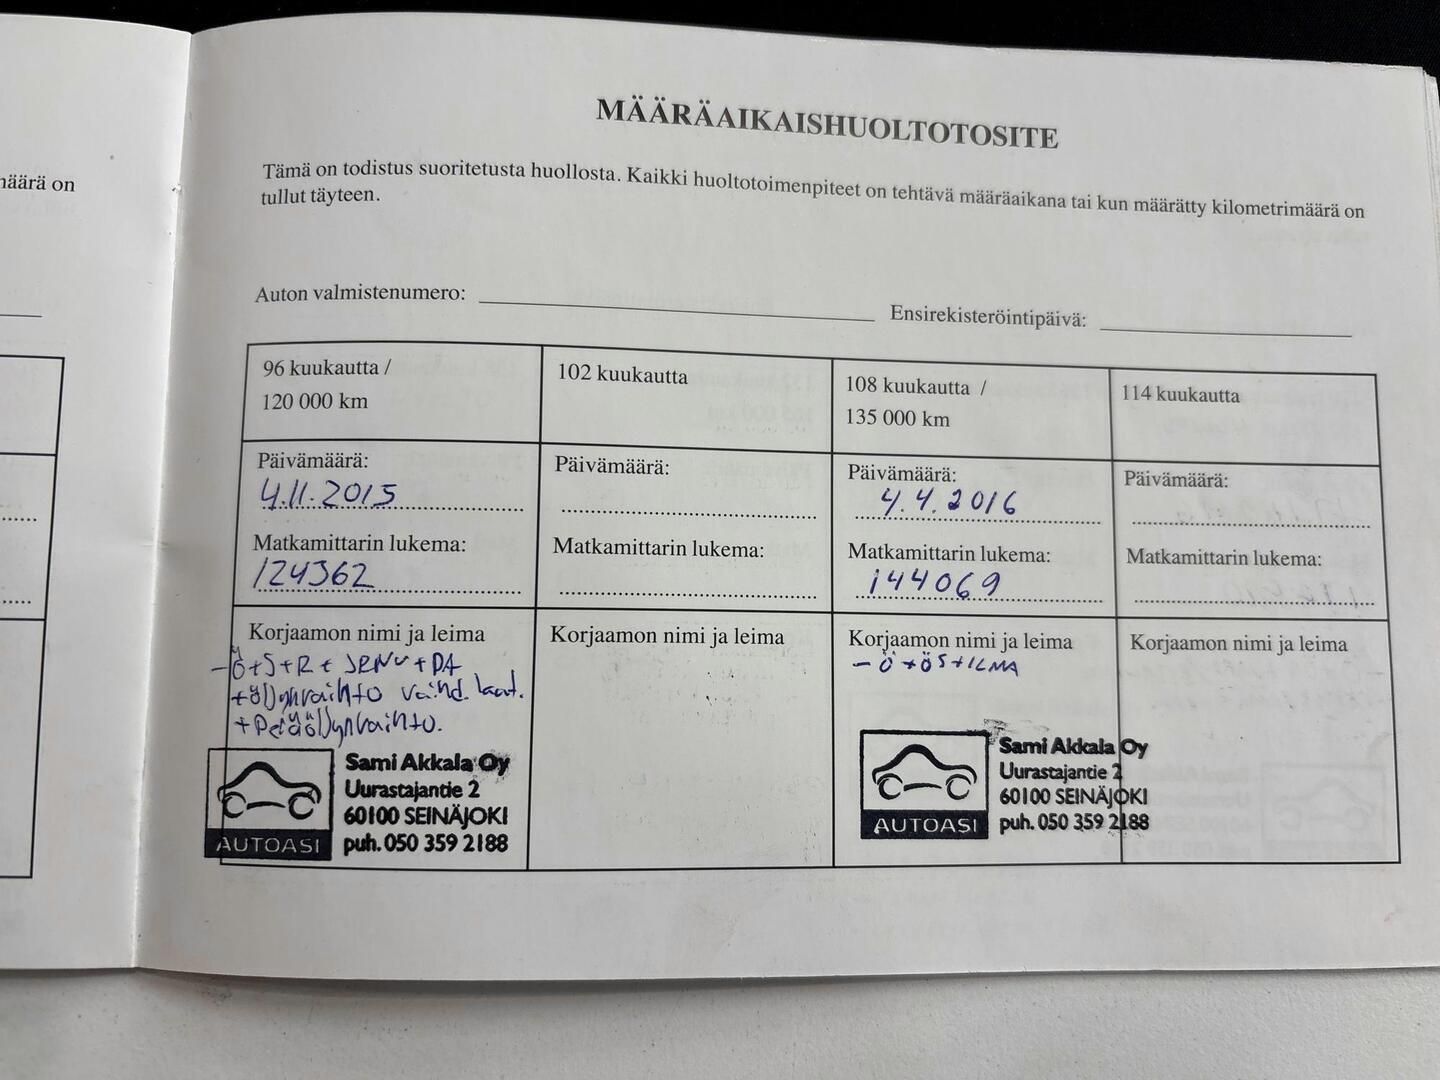 MÄÄRÄAIKAISHUOLTOTOSITE
Tämä on todistus suoritetusta huollosta. Kaikki huoltotoimenpiteet on tehtävä määräaikana tai kun määrätty kilometrimäärä on
tullut täyteen.
määrä on
Auton valmistenumero:
Ensirekisteröintipäivä:
96 kuukautta /
120 000 km
Päivämäärä:
4.11.2015
Matkamittarin lukema:
124362
Korjaamon nimi ja leima
-Ö+S+R+
+öljynvaihto vaihd. laat.
+Peräöljynvaihto.
AUTOASI
Sami Akkala Oy
Uurastajantie 2
60100 SEINÄJOKI
puh. 050 359 2188
102 kuukautta
Päivämäärä:
Matkamittarin lukema:
Korjaamon nimi ja leima
108 kuukautta /
135 000 km
Päivämäärä:
4.4.2016
Matkamittarin lukema:
144069
Korjaamon nimi ja leima
- Ö+ÖS+ILMA
AUTOASI
Sami Akkala Oy
Uurastajantie 2
60100 SEINÄJOKI
puh. 050 359 2188
114 kuukautta
Päivämäärä:
Matkamittarin lukema:
Korjaamon nimi ja leima